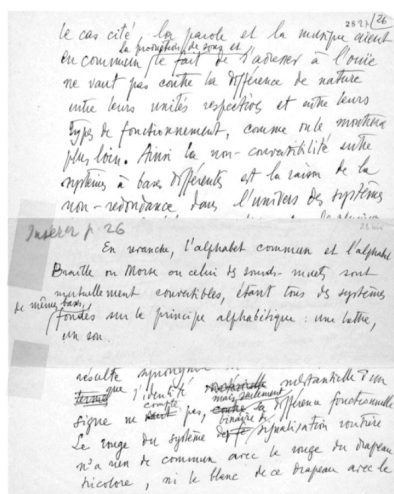 282 26
le cas cité, la parole et la musique aient
en commun la production de sons et le fait de s'adresser à l'ouïe
ne vaut pas contre la différence de nature
entre leurs unités respectives et entre leurs
types de fonctionnement, comme on le montrera
plus loin. Ainsi la non-convertibilité entre
systèmes à bases différentes est la raison de la
non-redondance dans l'univers des systèmes
Insérer p. 26
En revanche, l'alphabet commun et l'alphabet
Braille ou Morse ou celui des sourds-muets sont
mutuellement convertibles, étant tous des systèmes
de même base, fondés sur le principe alphabétique : une lettre,
un son.
résulte
que l'identité substantielle d'un
signe ne compte pas, mais seulement sa différence fonctionnelle
Le rouge du système binaire de signalisation routière
n'a rien de commun avec le rouge du drapeau
tricolore, ni le blanc de ce drapeau avec le